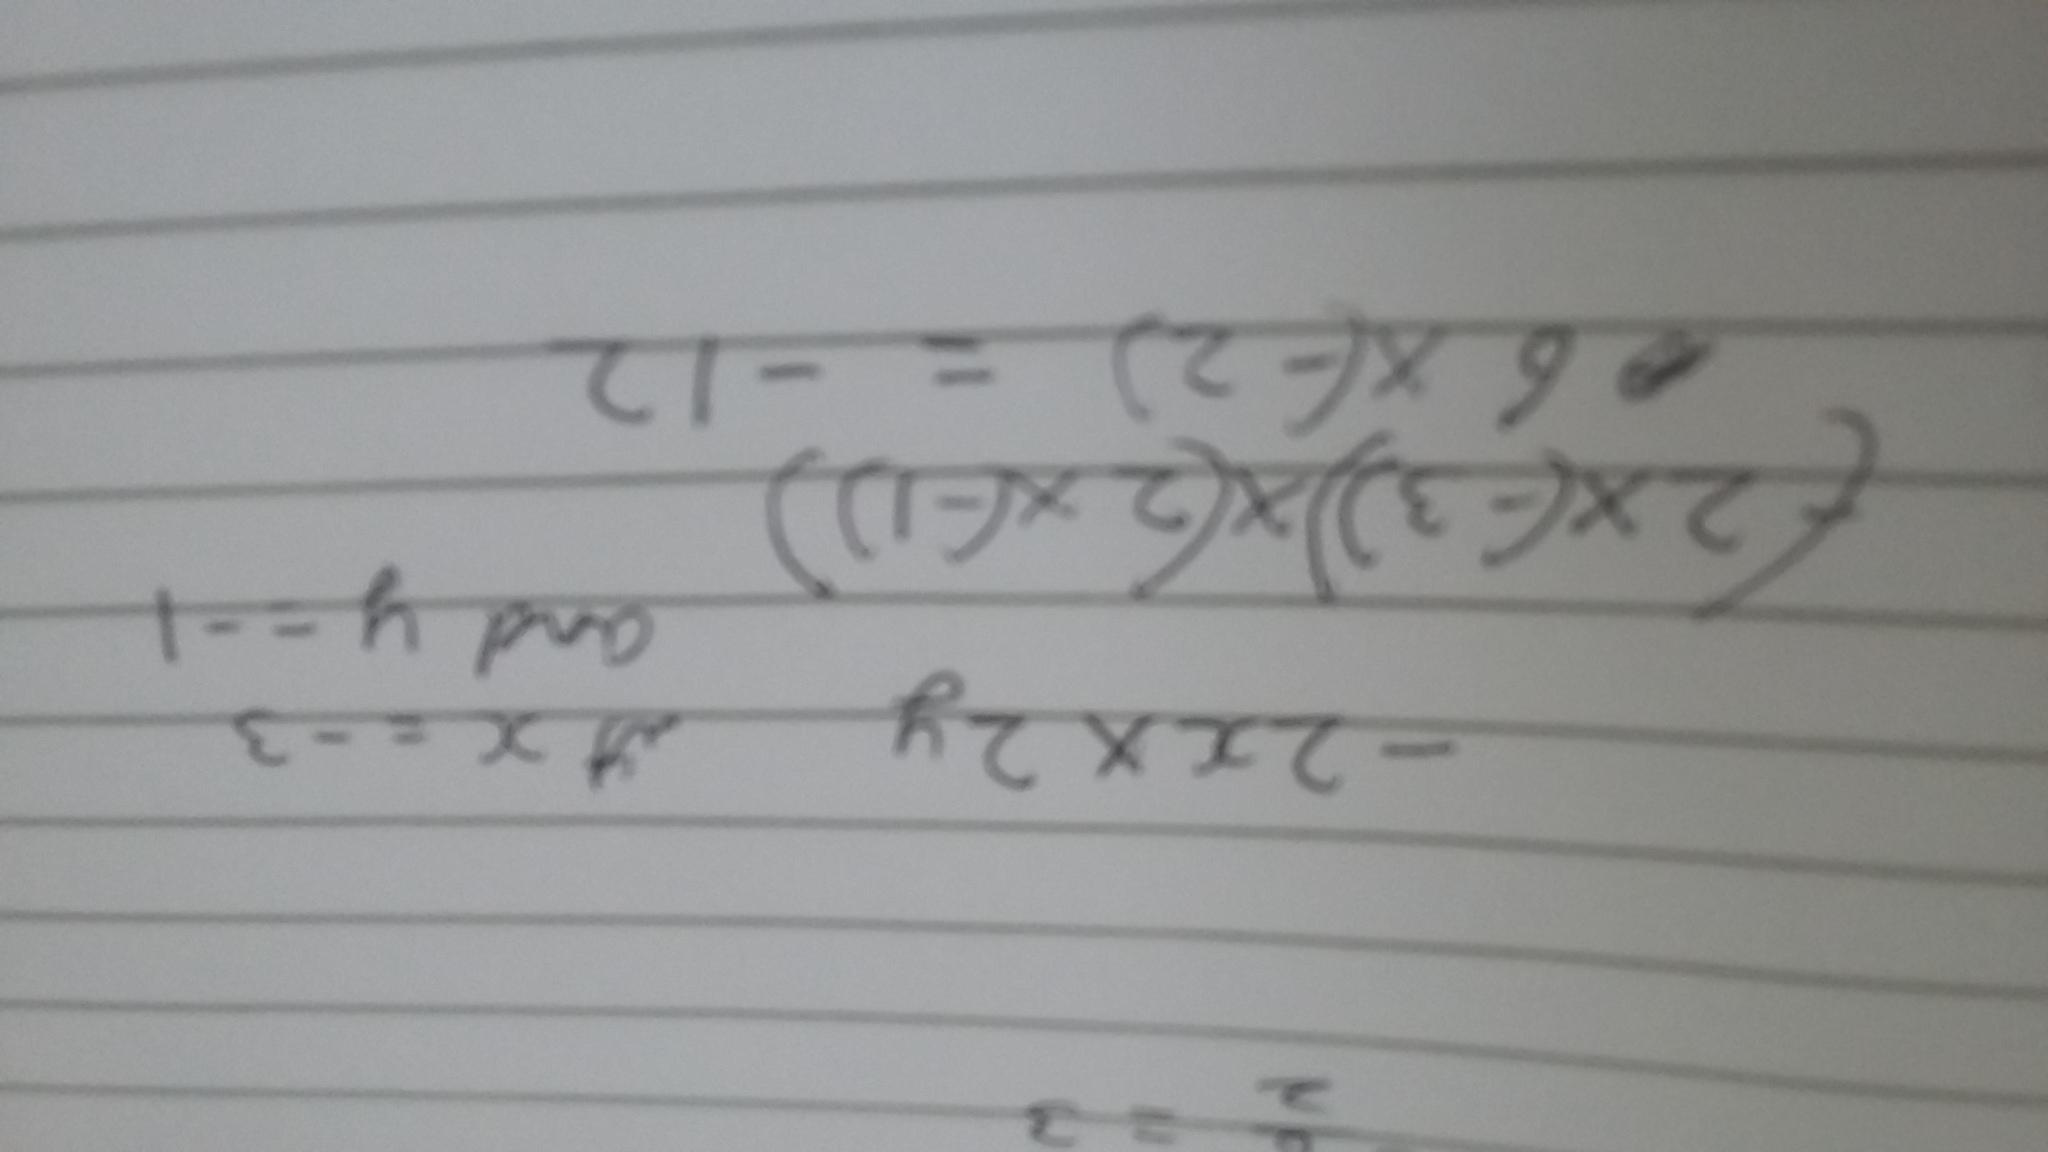 = 3
2
- 2x × 2y if x = -3
and y = -1
(-2×(-3))×(2×(-1))
6 ×(-2) = -12